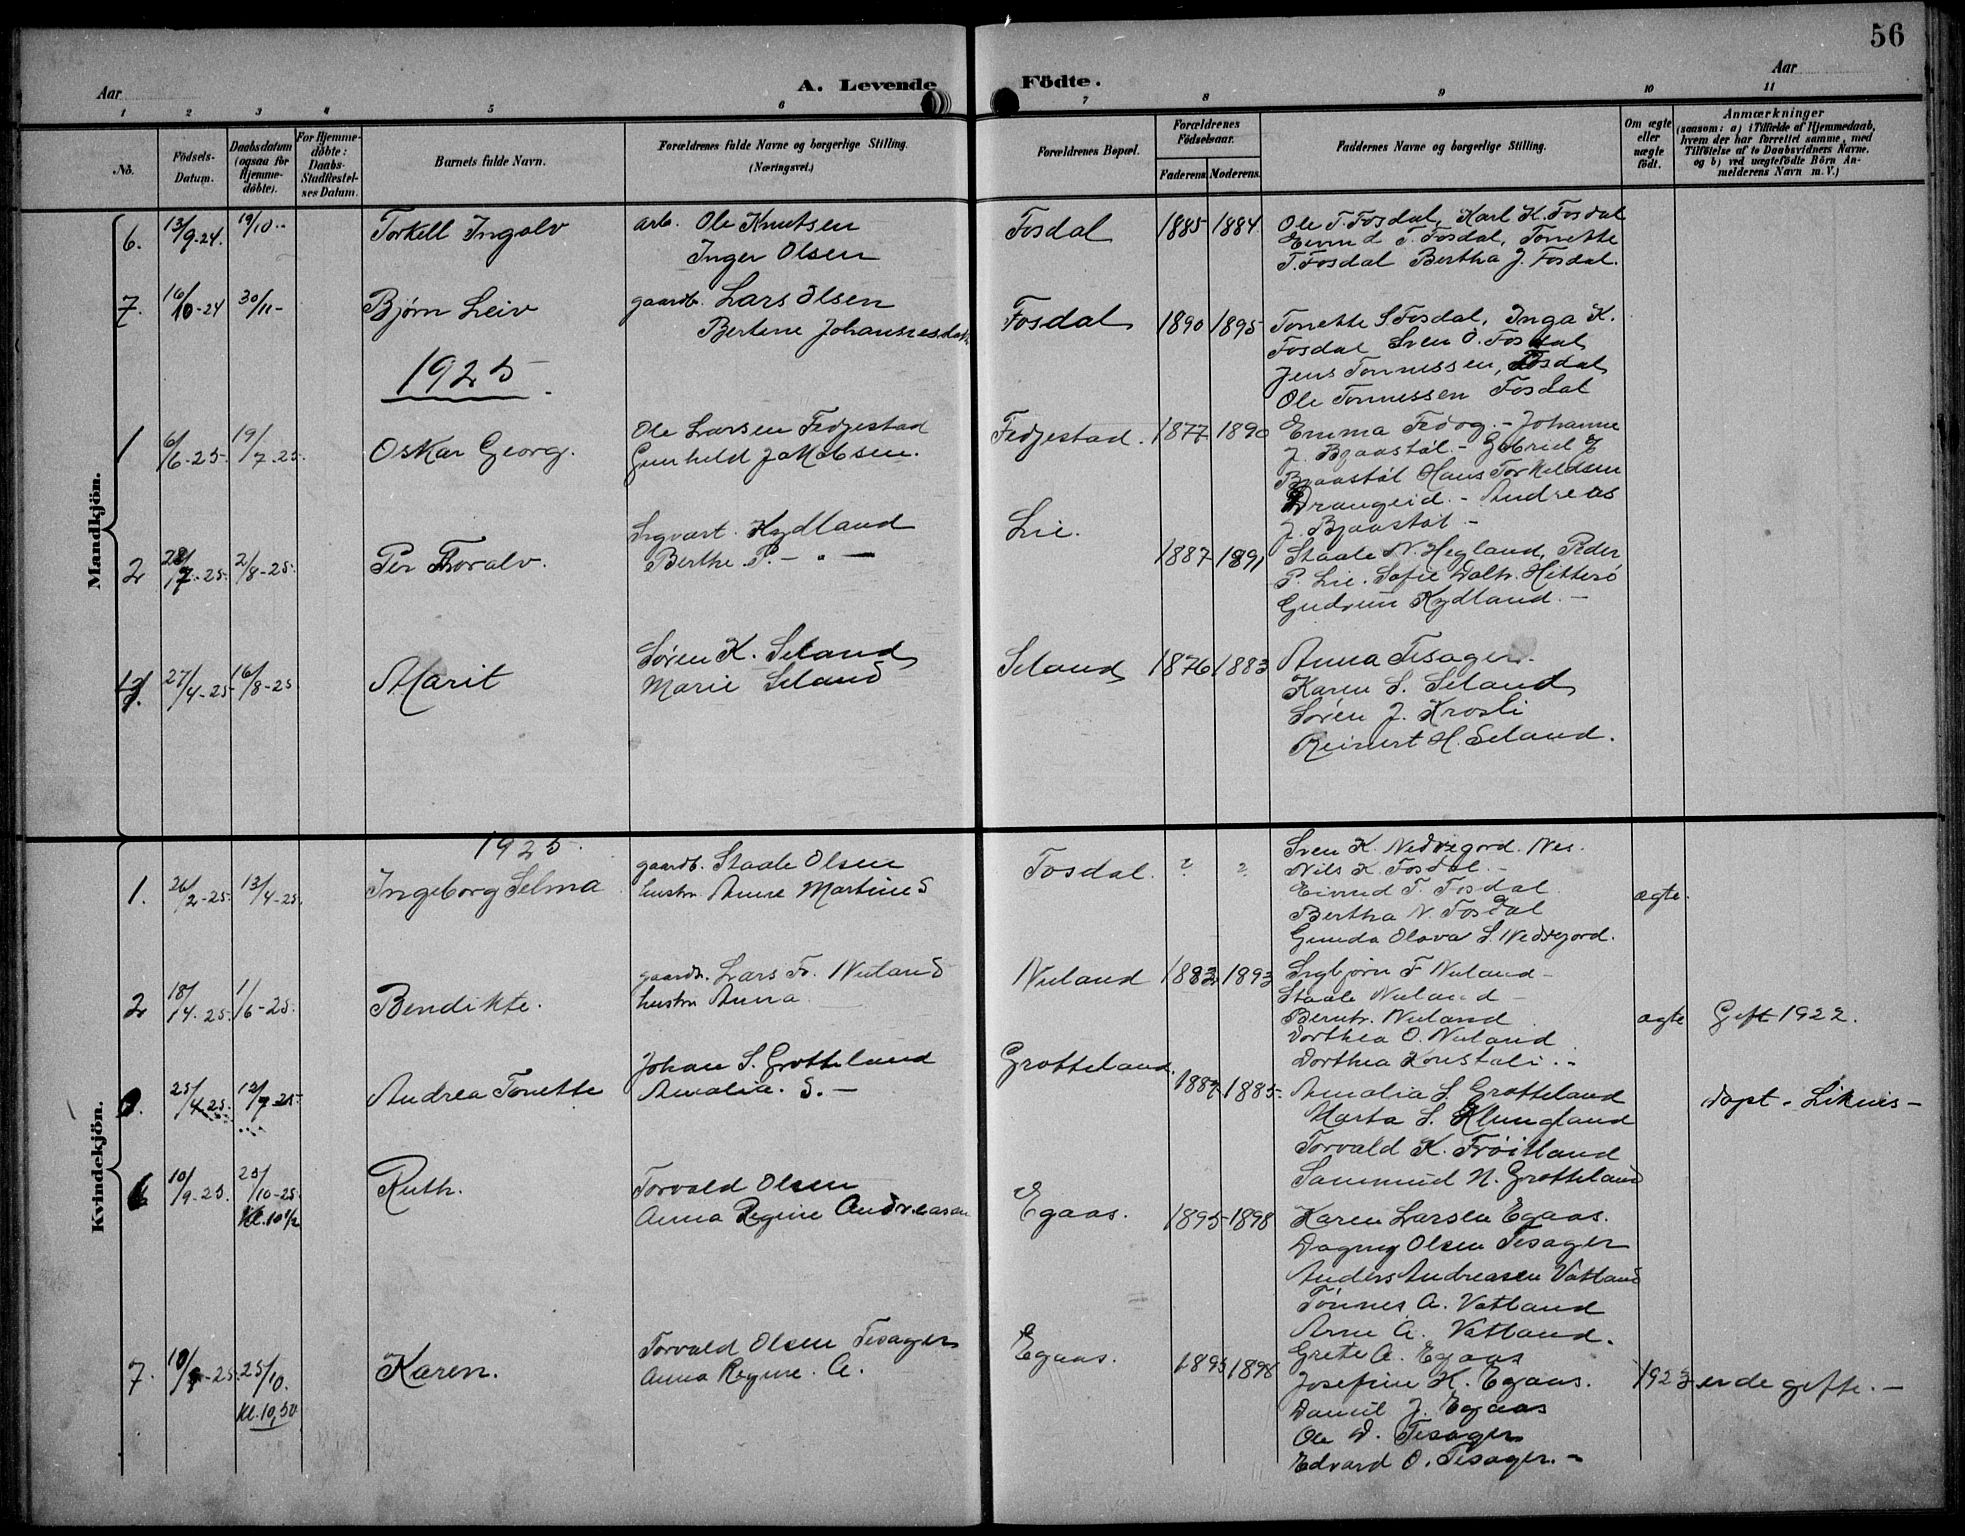 56
Aar
A. Levende Födte.
Aar
1 2 3 4 5 6 7 8 9 10 11
No.
Födsels-Datum.
Daabsdatum (ogsaa for Hjemme-döbte).
For Hjemme-döbte: Daabs-Stadfæstel-ses Datum.
Barnets fulde Navn.
Forældrenes fulde Navne og borgerlige Stilling.
(Næringsvei.)
Forældrenes Bopæl.
Forældrenes Födselsaar.
Faderens Moderens
Faddernes Navne og borgerlige Stilling.
Om ægte eller uægte født.
Anmærkninger
(saasom: a) i Tilfælde af Hjemmedaab,
hvem der har forrettet samme, med
Tilföielse af to Daabsvidners Navne.
og b) ved uægtefödte Börn An-
melderens Navn m. V.)
Mandkjön.
6. 13/9-24. 19/10-- Torkell Ingolv
arb. Ole Knutsen
Inger Olsen
Fosdal 1885 1884
Ole T. Fosdal, Karl K. Fosdal
Eivind T. Fosdal, Tonette
T. Fosdal Bertha J. Fosdal.
7. 16/10-24 30/11- Bjørn Leiv
gaardb. Lars Olsen
Bertine Johannesdatt.
Fosdal 1890 1895
Tonette S Fosdal, Inga K.
Fosdal Sven O. Fosdal
Jens Tønnessen, Fosdal
Ole Tønnessen Fosdal
1925.
1 6/6-25. 19/7-25. Oskar Georg.
Ole Larsen Fedjestad
Gunhild Jakobsen.
Fedjestad. 1877 1890
Emma Fedog. - Johanne
J. Bjaastøl. - Gabriel J
Bjaastøl Hans Torkildsen
Drangeid. - Andreas
J. Bjaastøl -
2 28/7-25. 2/8-25. Per Thoralv.
Ingvart. Kydland
Berthe P. - " -
Lie. 1887 1891
Staale N. Hegland, Peder
P. Lie. Sofie Dalh. Hitterø
Gudrun Kydland. -
3. 27/4-25 16/8-25 Marit
Søren K. Seland
Marie Seland
Seland 1876 1883
Anna Tesager.
Karen S. Seland
Søren J. Krosli
Reinert H. Seland.
Kvindekjön.
1925.
1. 26/2-25. 13/4-25. Ingeborg Selma
gaardb. Staale Olsen
hustru Anne Martine S
Fosdal. ? ?
Sven K. Nedregord. Nes.
Nils K. Fosdal. -
Eivind T. Fosdal.
Bertha N. Fosdal
Gunda Olava S. Nedregord.
ægte.
2 18/4-25. 1/6-25. Bendikte.
gaardb. Lars Fr. Nuland
hustru Anna
Nuland 1882 1893
Ingbjørn F Nuland -
Staale Nuland -
Berntr. Nuland
Dorthea O. Nuland
Dorthea Konstali. -
ægte Gift 1922.
25/4-25. 12/7-25. Andrea Tonette
Johan S. Grotteland
Amalia. S. -
Grotteland. 1887 1885.
Amalia S. Grotteland
Marta S. Klungland
Torvald K. Frøitland
Sammuel N. Grotteland
døpt. Liknes -
10/9-25. 25/10-25. Kl. 10 1/2 Ruth.
Torvald Olsen
Anna Regine Andreasen
Egaas. 1895 1898
Karen Larsen Egaas.
Dagny Olsen Tesager
Anders Andreasen Vatland
Tønnes A. Vatland
Arne A. Vatland.
7. 10/9-25 25/10. Kl. 10,30 Karen.
Torvald Olsen Tesager
Anna Regine. A.
Egaas. 1895 1898
Grete A. Egaas
Josefine K. Egaas.
Daniel J. Egaas
Ole D. Tesager
Edvard O. Tesager. -
1923 er de gifte. -